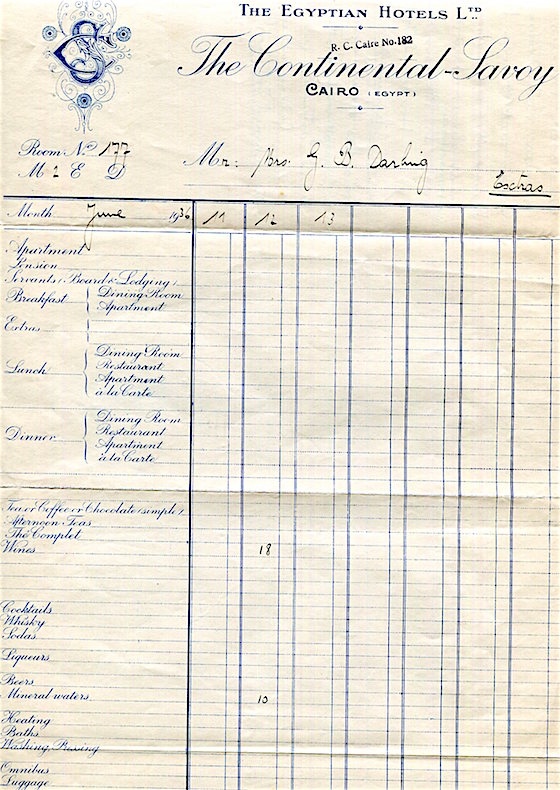 THE EGYPTIAN HOTELS LTD
R. C. Caire No. 182
The Continental-Savoy
CAIRO (EGYPT)
Room No 177
Mr. Mrs. G. B. Darling
M 2 E D
Extras
Month June 1936 11 12 13
Apartment
Pension
Servants (Board & Lodging)
Breakfast { Dining Room
Apartment
Extras
Lunch { Dining Room
Restaurant
Apartment
à la Carte
Dinner { Dining Room
Restaurant
Apartment
à la Carte
Tea or Coffee or Chocolate (simple)
Afternoon Teas
The Complet
Wines 18
Cocktails
Whisky
Sodas
Liqueurs
Beers
Mineral waters 10
Heating
Baths
Washing, Pressing
Omnibus
Luggage